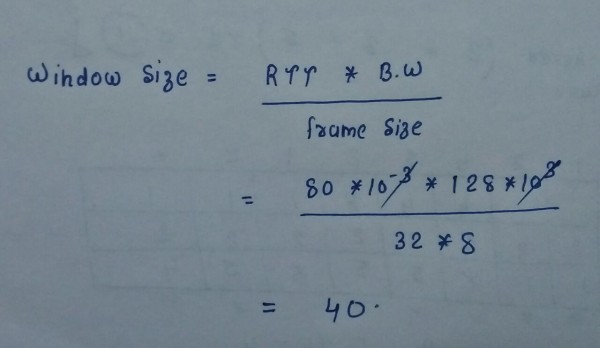 Window Size = RTT * B.W
frame Size
= 80 *10-3 * 128 *103
32 * 8
= 40.